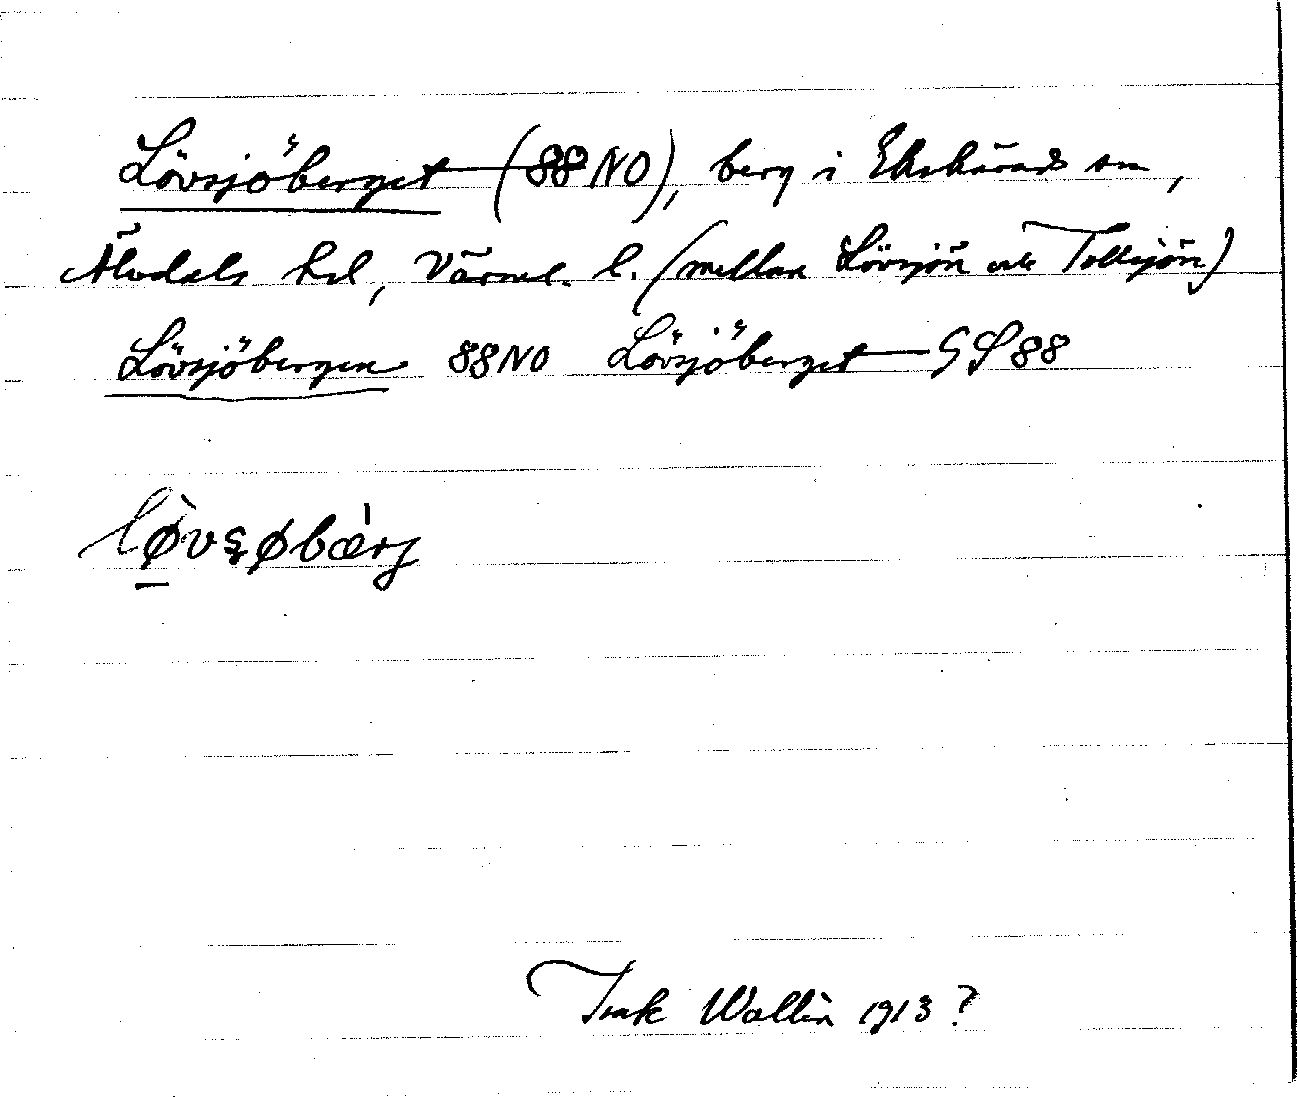 Lövsjöberget (88NO), berg i Ekshärads sn,
Älvdals hd, Värml. l. (mellan Lövsjön och Tollsjön)
Lövsjöbergen 88NO Lövsjöberget GS88
lø̀vʂøbæ̀rj
Wallin 1913?